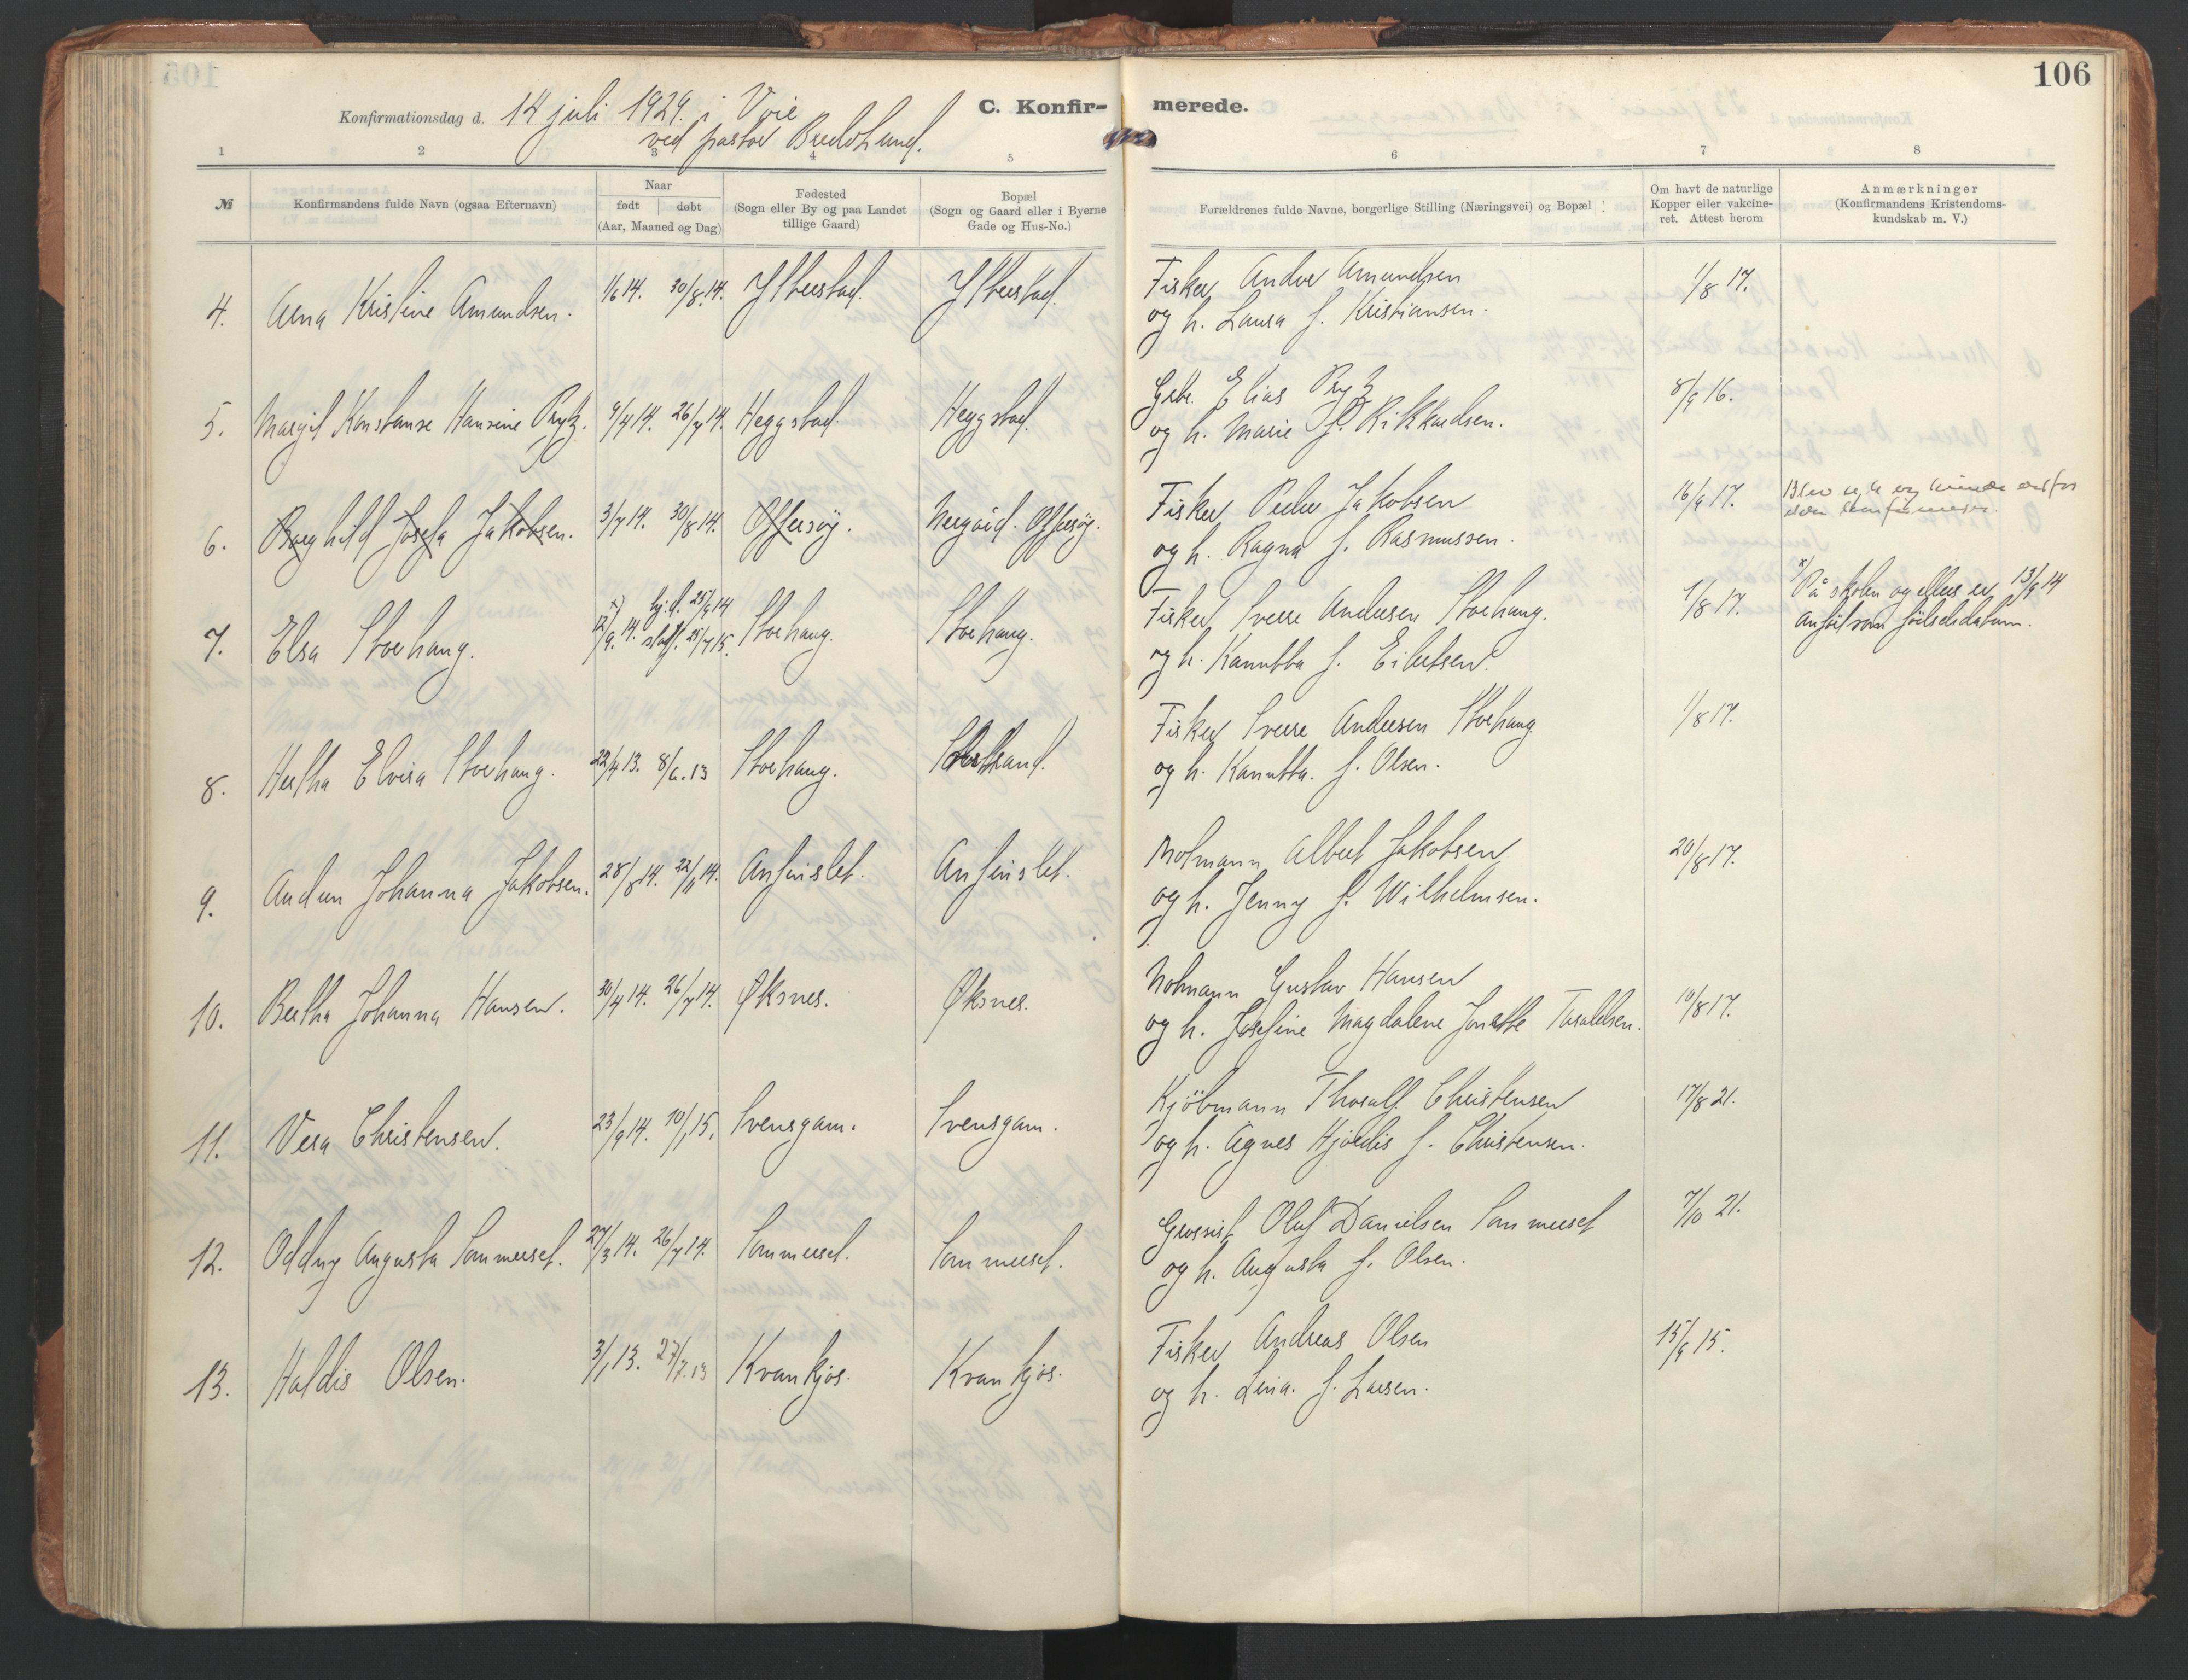 106
Konfirmationsdag d. 14 juli 1929. i Voie
C. Konfirmerede.
ved pastor
1 2 3 4 5 6 7 8
№
Konfirmandens fulde Navn (ogsaa Efternavn)
Naar
født døbt
(Aar, Maaned og Dag)
Fødested
(Sogn eller By og paa Landet
tillige Gaard)
Bopæl
(Sogn og Gaard eller i Byerne
Gade og Hus-No.)
Forældrenes fulde Navne, borgerlige Stilling (Næringsvei) og Bopæl
Om havt de naturlige
Kopper eller vakcine-
ret. Attest herom
Anmærkninger
(Konfirmandens Kristendoms-
kundskab m. V.)
4. Kristine Amundsen. 1/6 14. 30/8.14. Fisker Amundsen 1/8 17.
og h. Laura f. Kristiansen.
5. Margit Konstanse Hansine Prytz. 9/4 14. 26/7 14. Heggstad. Heggstad. Gbr. Elias Prytz 8/9 16.
og h. Marie f. Rikkardsen.
6. Borghild Josefa Jakobsen. 3/7 14. 30/8 14. Offersøy. Offersøy. Fisker Peder Jakobsen 16/9 17. Blev syk og kunde
og h. Ragna f. Rasmussen.
7. Elsa Storhaug. x) 12/9. 14. hj.d. 25/9 14 Storhaug. Storhaug. Fisker Sverre Andersen Storhaug. 1/8 17. x) På skolen og ellers er 13/9 14
stadf. 25/7 15. anført som fødselsdatum.
og h. Kanutta f. Eilertsen.
8. Hertha Elvira Storhaug. 22/4 13. 8/6.13 Storhaug. Fisker Sverre Andersen Storhaug 1/8 17.
og h. Kanutta. f. Olsen.
9. Johanna Jakobsen. 28/8 14. 22/11 14. Anfinslet. Anfinslet. Nolmann Albert Jakobsen 20/8 17.
og h. Jenny f. Wilhelmsen.
10. Bertha Johanna Hansen. 30/4 14. 26/7 14. Øksnes. Øksnes. Nolmann Gustav Hansen 10/8 17.
og h. Josefine Magdalene Jonette Toraldsen.
11. Vera Christensen. 23/9 14. 10/1 15. Svensgam. Svensgam. Kjøbmann Thoralf Christensen 17/8 21.
og h. Agnes Hjørdis f. Christensen.
12. Oddny Augusta Sommerset. 27/3 14. 26/7 14. Sommerset. Sommerset. Grosist Oluf Danielsen Sommerset 7/10 21.
og h. Augusta f. Olsen.
13. Haldis Olsen. 3/1 13. 27/7.13 Kvankjos. Kvankjos. Fisker Andreas Olsen 15/9 15.
og h. Lina. f. Larsen.